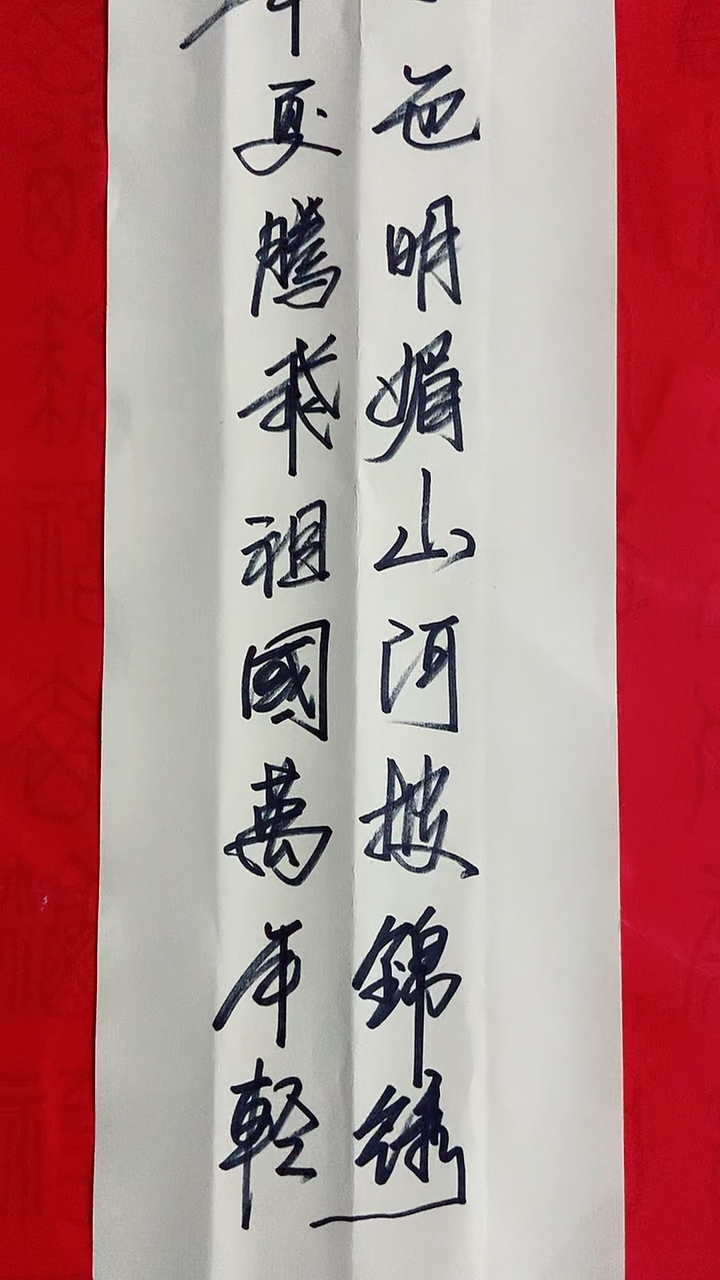 色明媚山河披錦綉
夏騰飛祖國萬年輕